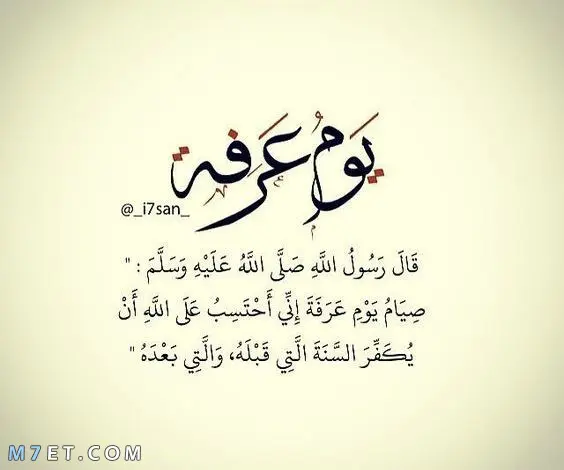 يَومُ عَرَفة
@_i7san_
قَالَ رَسُولُ اللَّهِ صَلَّى اللَّهُ عَلَيْهِ وَسَلَّمَ : "
صِيَامُ يَوْمِ عَرَفَةَ إِنِّي أَحْتَسِبُ عَلَى اللَّهِ أَنْ
يُكَفِّرَ السَّنَةَ الَّتِي قَبْلَهُ، وَالَّتِي بَعْدَهُ "
M7ET.COM